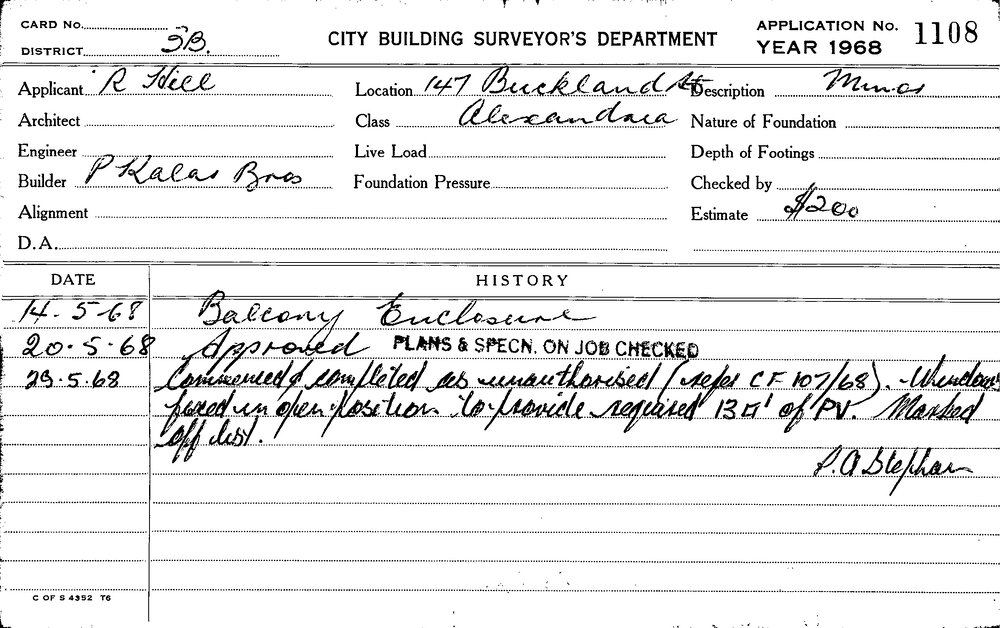 CARD No.
DISTRICT SB.
CITY BUILDING SURVEYOR'S DEPARTMENT
APPLICATION No. 1108
YEAR 1968
Applicant R Hill Location 147 Buckland St Description Minor
Architect Class Alexandria Nature of Foundation
Engineer Live Load Depth of Footings
Builder P Kalas Bros Foundation Pressure Checked by
Alignment Estimate $200
D.A.
DATE HISTORY
14.5-68 Balcony Enclosure
20.5.68 Approved PLANS & SPECN. ON JOB CHECKED
29.5.68 Commenced & completed as unauthorised (refer CF 107/68). Windows
fixed in open position to provide required 13□' of PV. Marked
off list.
P. A Stephan
C OF S 4352 T6